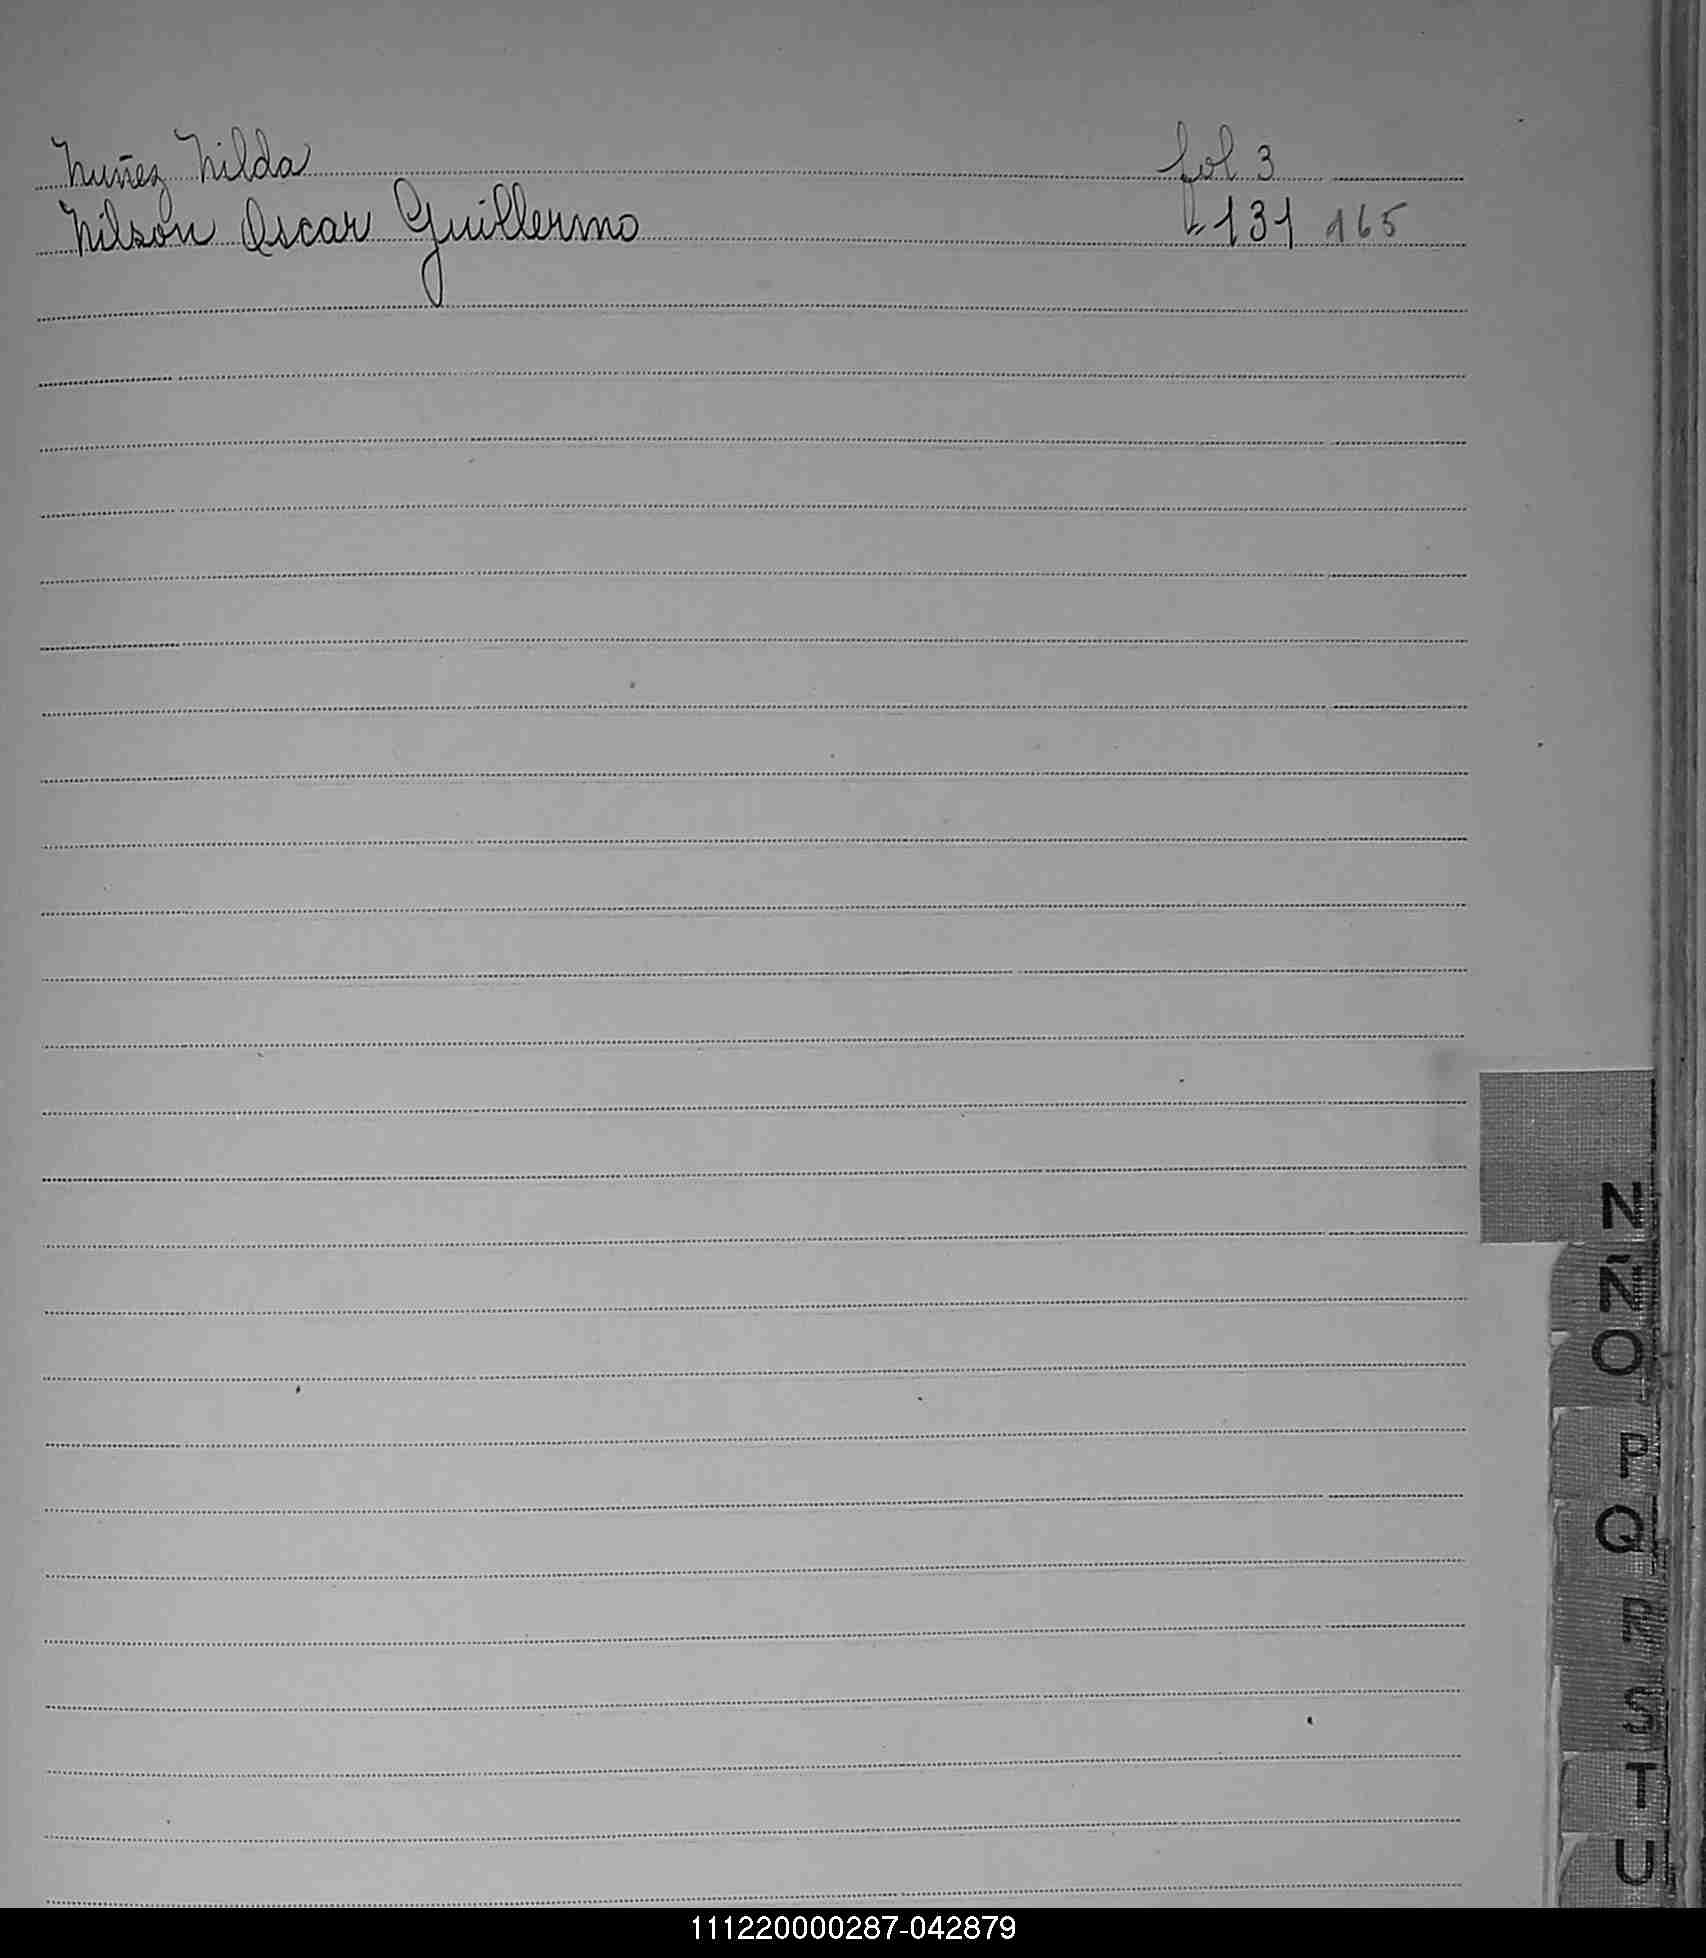 Nuñez Nilda fol 3
Nilson Oscar Guillermo 131 165
N
Ñ
O
P
Q
R
S
T
U
111220000287-042879